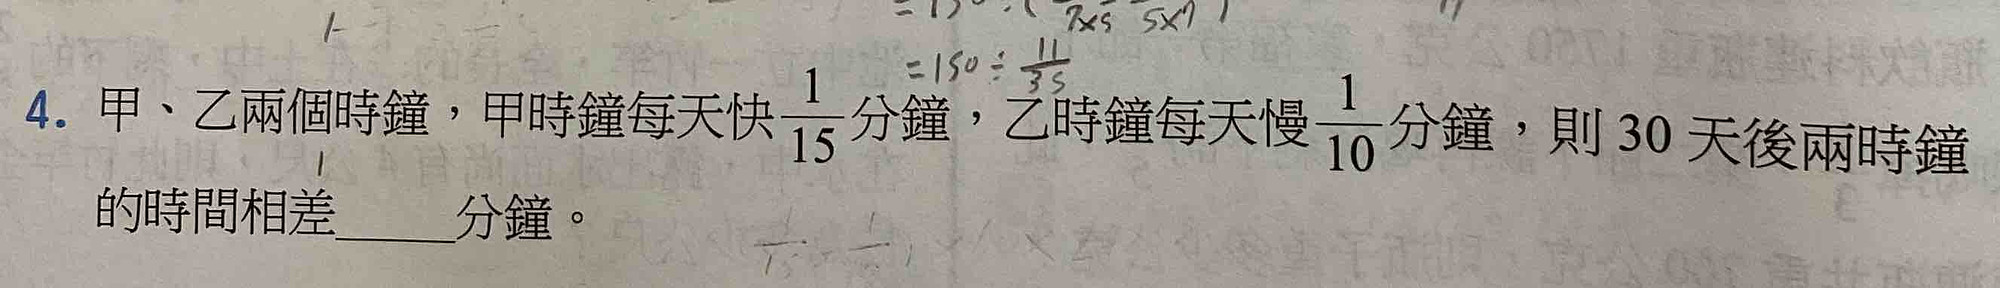 =150÷11/35
4. 甲、乙兩個時鐘,甲時鐘每天快1/15分鐘,乙時鐘每天慢1/10分鐘,則 30 天後兩時鐘
的時間相差_____分鐘。